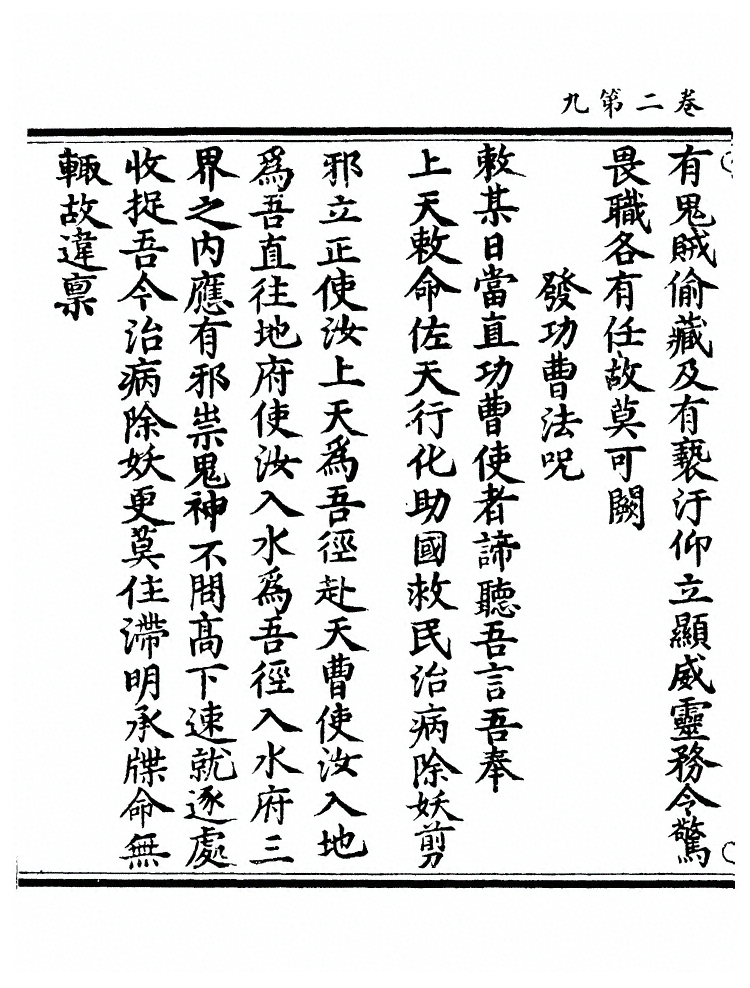 卷二第九
有鬼賊偷藏及有褻汙仰立顯威靈務令驚
畏職各有任故莫可闕
發功曹法呪
敕某日當直功曹使者諦聽吾言吾奉
上天敕命佐天行化助國救民治病除妖剪
邪立正使汝上天爲吾徑赴天曹使汝入地
爲吾直往地府使汝入水爲吾徑入水府三
界之内應有邪祟鬼神不問高下速就逐處
收捉吾令治病除妖更莫住滯明承牒命無
輙故違稟